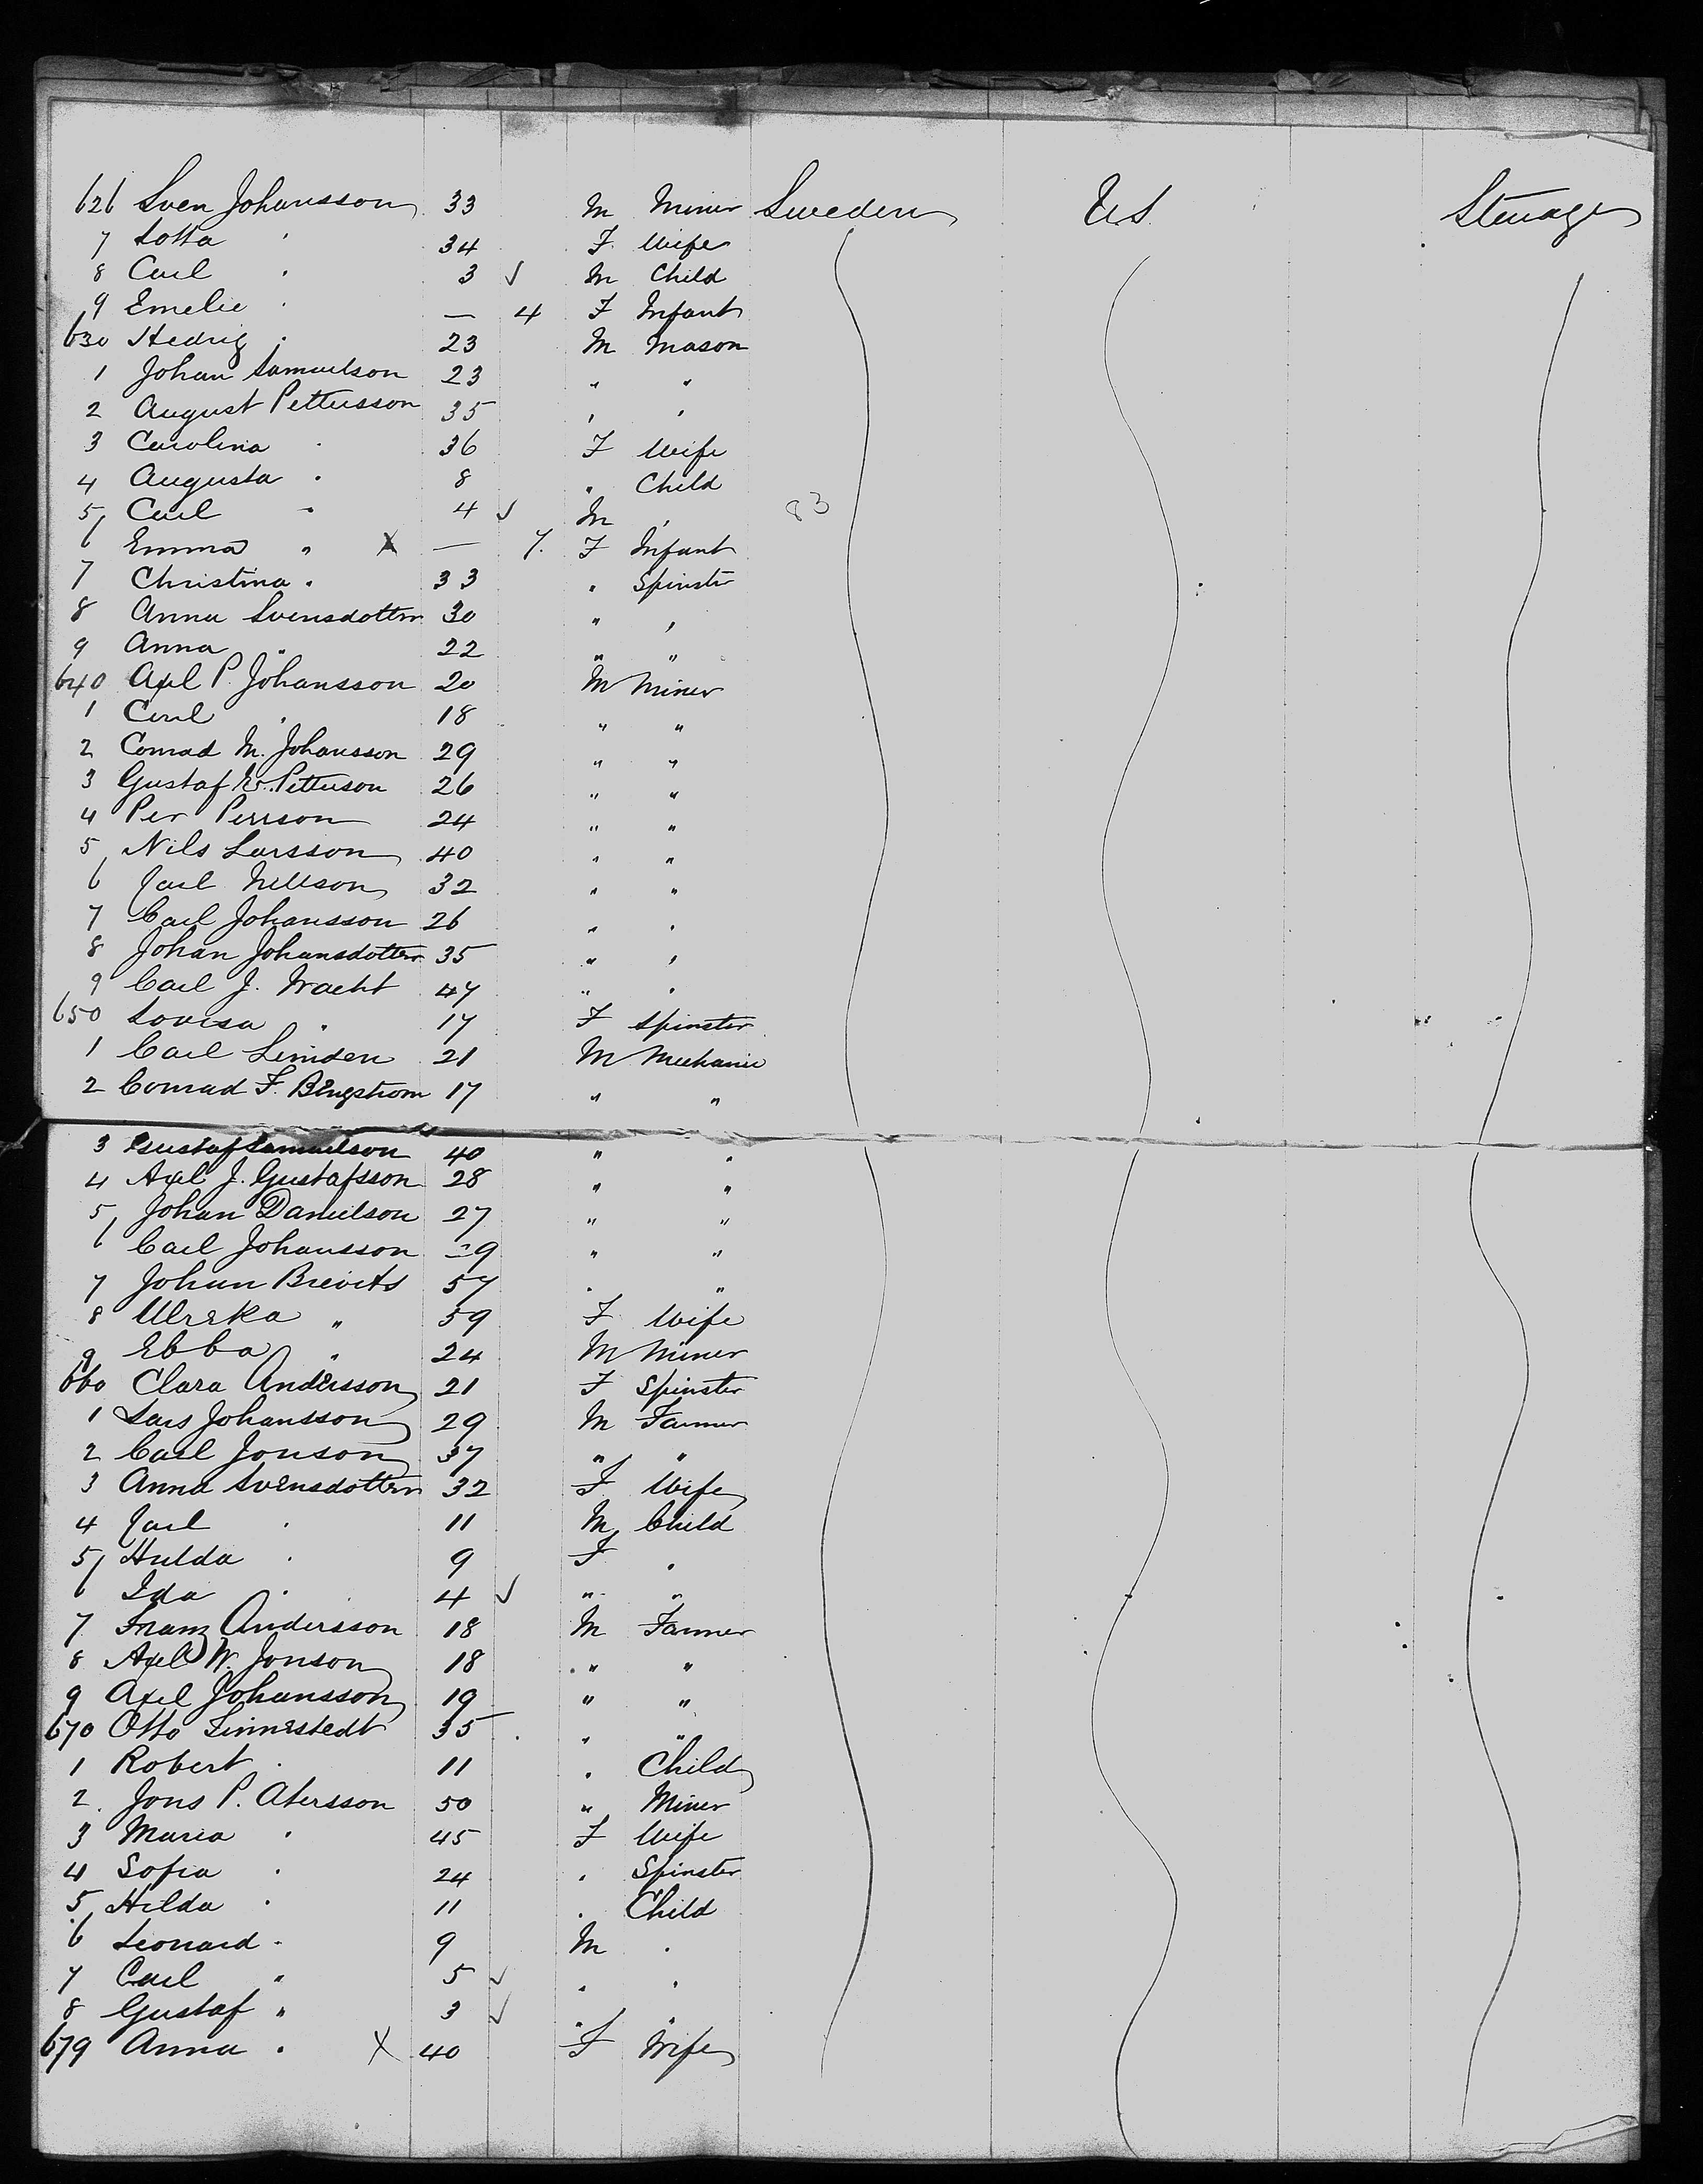 626 Sven Johansson 33 M Miner Sweden U.S. Steerage
7 Lotta " 34 F Wife
8 Carl " 3 ✓ M Child
9 Emelie " — 4 F Infant
630 Hedvig " 23 M Mason
1 Johan Samuelson 23 " "
2 August Pettersson 35 " "
3 Carolina " 36 F Wife
4 Augusta " 8 " Child
5 Carl " 4 ✓ M " 83
6 Emma " X — 7. F Infant
7 Christina " 33 " Spinster
8 Anna Svensdotter 30 " "
9 Anna " 22 " "
640 Axel P. Johansson 20 M Miner
1 Carl " 18 " "
2 Conrad M. Johansson 29 " "
3 Gustaf E. Petterson 26 " "
4 Per Persson 24 " "
5 Nils Larsson 40 " "
6 Jarl Nellson 32 " "
7 Carl Johansson 26 " "
8 Johan Johansdotter 35 " "
9 Carl J. Wracht 47 " "
650 Lovisa " 17 F Spinster
1 Carl Linden 21 M Mechanic
2 Conrad F. Bengstrom 17 " "
3 Gustaf Samuelson 40 " "
4 Axel J. Gustafsson 28 " "
5 Johan Danielson 27 " "
6 Carl Johansson 29 " "
7 Johan Brevits 57 " "
8 Ulreka " 59 F Wife
9 Ebba " 24 M Miner
660 Clara Andersson 21 F Spinster
1 Lars Johansson 29 M Farmer
2 Carl Jonson 37 " "
3 Anna Svensdotter 32 F Wife
4 Jarl " 11 M Child
5 Hulda " 9 F "
6 Ida " 4 ✓ " "
7 Franz Andersson 18 M Farmer
8 Axel W. Jonson 18 " "
9 Axel Johansson 19 " "
670 Otto Linnestedt 35 " "
1 Robert " 11 " Child
2 Jons P. Atersson 50 " Miner
3 Maria " 45 F Wife
4 Sofia " 24 " Spinster
5 Hilda " 11 " Child
6 Leonard " 9 M "
7 Carl " 5 ✓ " "
8 Gustaf " 3 ✓ " "
679 Anna " X 40 F Wife